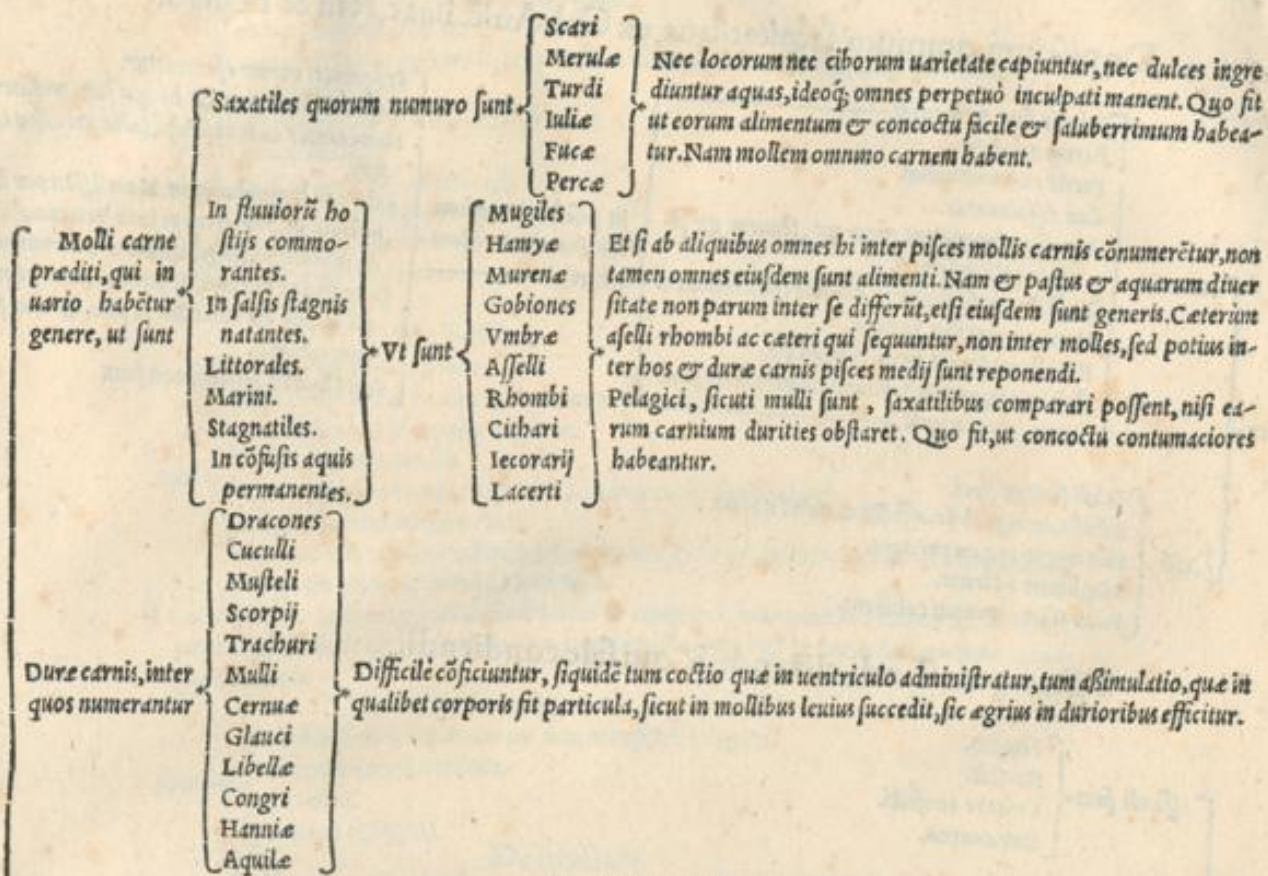 Molli carne
præditi, qui in
uario habẽtur
genere, ut ſunt
Saxatiles quorum numuro ſunt
Scari
Merulæ
Turdi
Iuliæ
Fucæ
Percæ
Nec locorum nec ciborum uarietate capiuntur, nec dulces ingre
diuntur aquas, ideoq; omnes perpetuò inculpati manent. Quo fit
ut eorum alimentum & concoctu facile & ſaluberrimum habea-
tur. Nam mollem omnino carnem habent.
In fluuiorũ ho
ſtijs commo-
rantes.
In ſalſis ſtagnis
natantes.
Littorales.
Marini.
Stagnatiles.
In cõfuſis aquis
permanentes.
Vt ſunt
Mugiles
Hamyæ
Murenæ
Gobiones
Vmbræ
Aſſelli
Rhombi
Cithari
Iecorarij
Lacerti
Et ſi ab aliquibus omnes hi inter piſces mollis carnis cõnumerẽtur, non
tamen omnes eiuſdem ſunt alimenti. Nam & paſtus & aquarum diuer
ſitate non parum inter ſe differũt, etſi eiuſdem ſunt generis. Cæterùm
aſelli rhombi ac cæteri qui ſequuntur, non inter molles, ſed potius in-
ter hos & duræ carnis piſces medij ſunt reponendi.
Pelagici, ſicuti mulli ſunt, ſaxatilibus comparari poſſent, niſi ea-
rum carnium durities obſtaret. Quo fit, ut concoctu contumaciores
habeantur.
Duræ carnis, inter
quos numerantur
Dracones
Cuculli
Muſteli
Scorpij
Trachuri
Mulli
Cernuæ
Glauci
Libellæ
Congri
Hanniæ
Aquilæ
Difficilè cõficiuntur, ſiquidẽ tum coctio quæ in uentriculo adminiſtratur, tum aßimulatio, quæ in
qualibet corporis fit particula, ſicut in mollibus leuius ſuccedit, ſic ægrius in durioribus efficitur.